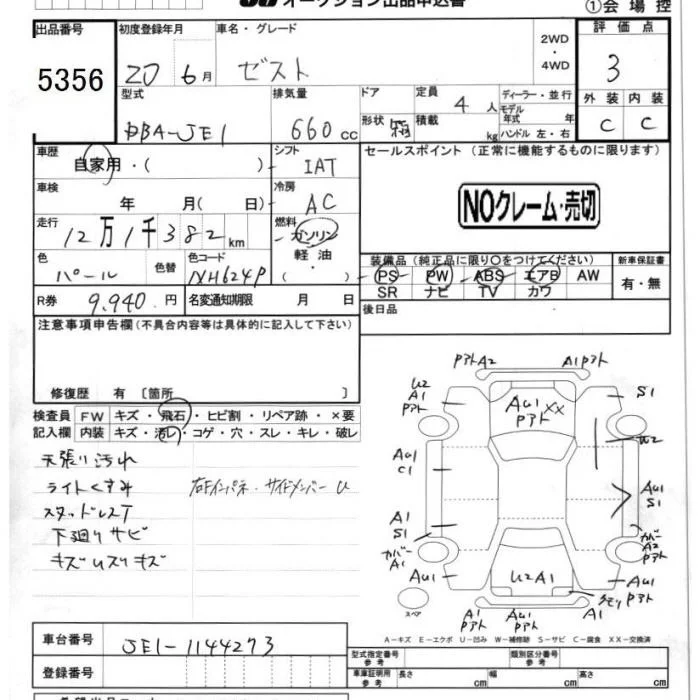 オークション出品申込書
①会場控
出品番号
5356
初度登録年月
20 6月
車名・グレード
ゼスト
2WD
・
4WD
評価点
3
型式
DBA-JE1
排気量
660 cc
ドア
形状 箱
定員
4 人
積載
kg
ディーラー・並行
モデル
年式 年
ハンドル 左・右
外装 内装
C C
車歴
自家用・( )
シフト
IAT
セールスポイント (正常に機能するものに限ります)
NOクレーム・売切
車検
年 月( 日)
冷房
AC
走行
12万1千382 km
燃料
ガソリン
軽油・
( )
色
パール
色替
色コード
NH624P
装備品 (純正品に限り〇をつけてください)
PS PW ABS エアB AW
SR ナビ TV カワ
新車保証書
有・無
R券 9,940 円
名変通知期限 月 日
後日品
注意事項申告欄 (不具合内容等は具体的に記入して下さい)
修復歴 有 〔箇所 〕
検査員
記入欄
FW キズ・飛石・ヒビ割・リペア跡・×要
内装 キズ・汚レ・コゲ・穴・スレ・キレ・破レ
天張り汚れ
ライトくすみ
スタッドレスT
下廻りサビ
キズムスリキズ
右Fインパネ・サイドメンバー U
PアトA2
A1Pアト
U2
A1
Pアト
AU1 XX
Pアト
S1
U2
AU1
C1
AU1
S1
A1
S1
カバー
A1
カバー
A2
Pアト
AU1
U2A1
AU1
Pアト
クモリPアト
A1
Pアト
AU1
Pアト
A1
スペア
A-キズ E-エクボ U-凹み W-補修跡 S-サビ C-腐食 XX-交換済
車台番号
JE1-1144273
登録番号
型式指定番号
参考
類別区分番号
参考
車庫証明用
参考
長さ cm
幅 cm
高さ cm